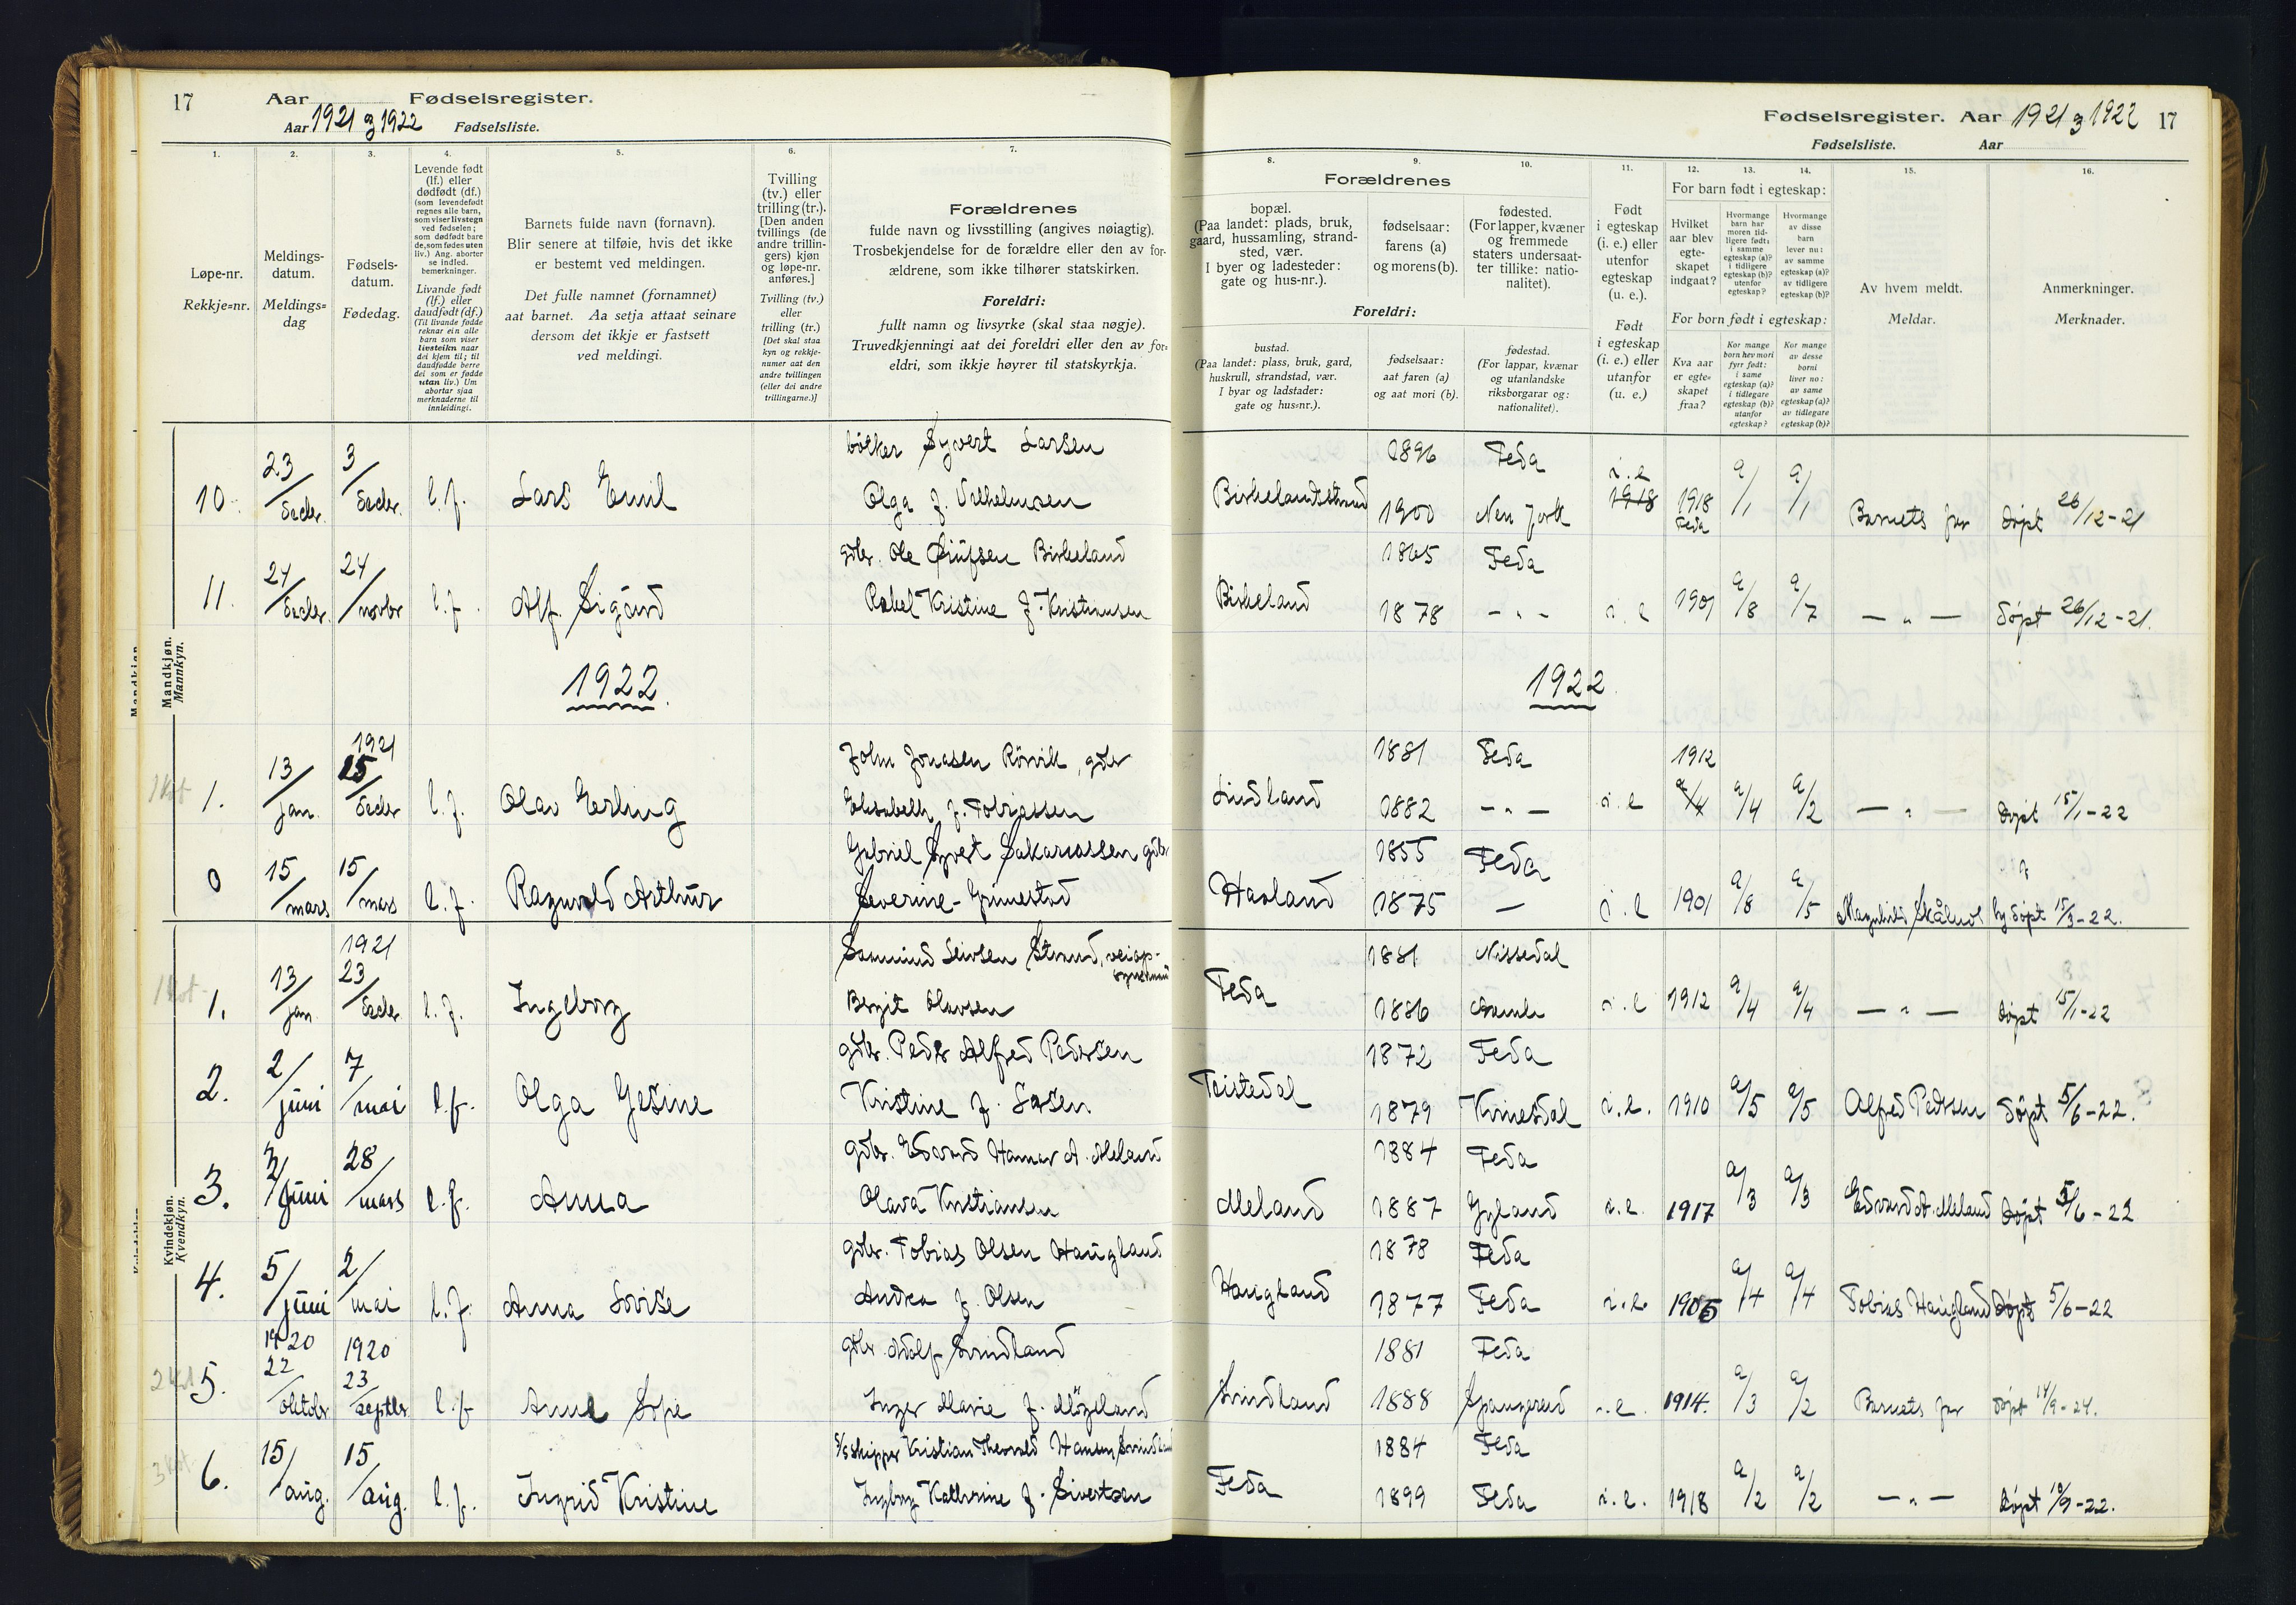 17 Aar Fødselsregister.
Aar 1921 og 1922 Fødselsliste.
1. 2. 3. 4. 5. 6. 7.
Løpe-nr.
Rekkje=nr.
Meldings-
datum.
Meldings=
dag
Fødsels-
datum.
Fødedag.
Levende født
(lf.) eller
dødfødt (df.)
(som levendefødt
regnes alle barn,
som viser livstegn
ved fødselen;
som dødfødt bare
de, som fødes uten
liv.) Ang. aborter
se indled.
bemerkninger.
Livande født
(lf.) eller
daudfødt (df.)
(Til livande fødde
reknar ein alle
barn som viser
livsteikn naar
dei kjem til; til
daudfødde berre
dei som er fødde
utan liv.) Um
abortar sjaa
merknaderne til
innleidingi.
Barnets fulde navn (fornavn).
Blir senere at tilføie, hvis det ikke
er bestemt ved meldingen.
Det fulle namnet (fornamnet)
aat barnet. Aa setja attaat seinare
dersom det ikkje er fastsett
ved meldingi.
Tvilling
(tv.) eller
trilling (tr.).
[Den anden
tvillings (de
andre trillin-
gers) kjøn
og løpe-nr.
anføres.]
Tvilling (tv.)
eller
trilling (tr.)
[Det skal staa
kyn og rekkje-
numer aat den
andre tvillingen
(eller dei andre
trillingarne.)]
Forældrenes
fulde navn og livsstilling (angives nøiagtig).
Trosbekjendelse for de forældre eller den av for-
ældrene, som ikke tilhører statskirken.
Foreldri:
fullt namn og livsyrke (skal staa nøgje).
Truvedkjenningi aat dei foreldri eller den av for=
eldri, som ikkje høyrer til statskyrkja.
Mandkjøn.
Mannkyn.
10. 23/decbr. 3/decbr. l.f. Lars Emil
bøtker Syvert Larsen
Olga f. Vilhelmsen
11. 24/decbr. 24/novbr l.f. Alf. Sigurd
gdbr. Ole Birkeland
Rakel Kristine f. Kristiansen
1922.
1. 13/jan. 1921 15/decbr l.f. Olav Erling
John Jonasen Rörvik, gdbr
Elisabeth f. Tobiassen
0 15/mars 15/mars l.f. Ragnvald Arthur
Gabriel Syvert Sakariassen gdbr
Severine Grimestad
Kvindekjøn.
Kvendkyn.
1. 13/jan. 1921 23/decbr. l.f. Ingeborg
Sveinsen Strand,
Bergit Olavsen
2. 2/juni 7/mai l.f. Olga Gesine
gdbr. Peder Alfred Pedersen
Kristine f. Larsen
3. 2/juni 28/mars l.f. Anna
gdbr. Edvard Hamar A. Meland
Olava Kristiansen
4. 5/juni 2/mai l.f. Anna Lovise
gdbr. Tobias Olsen Haugland
Andrea f. Olsen
5. 1920 22/oktobr 1920 23/septbr l.f. Anne Sofie
gdbr. Adolf Svindland
Inger Marie f. Møgeland
6. 15/aug. 15/aug. l.f. Ingrid Kristine
S/S skipper Kristian Theovald Hansen Svindland
Ingborg Kathrine f. Sivertsen
Fødselsregister. Aar 1921 og 1922 17
Fødselsliste. Aar
8. 9. 10. 11. 12. 13. 14. 15. 16.
Forældrenes
bopæl.
(Paa landet: plads, bruk,
gaard, hussamling, strand-
sted, vær.
I byer og ladesteder:
gate og hus-nr.).
fødselsaar:
farens (a)
og morens (b).
fødested.
(For lapper, kvæner
og fremmede
staters undersaat-
ter tillike: natio-
nalitet).
Foreldri:
bustad.
(Paa landet: plass, bruk, gard,
huskrull, strandstad, vær.
I byar og ladstader:
gate og hus=nr.).
fødselsaar:
aat faren (a)
og aat mori (b).
fødestad.
(For lappar, kvænar
og utanlandske
riksborgarar og:
nationalitet).
Født
i egteskap
(i. e.) eller
utenfor
egteskap
(u. e.).
Født
i egteskap
(i. e.) eller
utanfor
(u. e.)
For barn født i egteskap:
Hvilket
aar blev
egte-
skapet
indgaat?
Hvormange
barn har
moren tid-
ligere født:
i samme
egteskap (a)?
i tidligere
egteskap (b)?
utenfor
egteskap?
Hvormange
av disse
barn
lever nu:
av samme
egteskap (a)?
av tidligere
egteskap (b)?
For born født i egteskap:
Kva aar
er egte=
skapet
fraa?
Kor mange
born hev mori
fyrr født:
i same
egteskap (a)?
i tidlegare
egteskap (b)?
utanfor
egteskap?
Kor mange
av desse
borni
liver no:
av same
egteskap (a)?
av tidlegare
egteskap (b)?
Av hvem meldt.
Meldar.
Anmerkninger.
Merknader.
Birkelandsstrand 1896 Feda
1900 New York i.e 1918 1918 Feda a/1 a/1 Barnets far døpt 26/12-21
Birkeland 1865 Feda
1878 - " - i.e 1901 a/8 a/7 - " - døpt 26/12-21.
1922
Lindland 1881 Feda 1912
1882 - " - i.e a/4 a/4 a/2 - " - døpt 15/1-22
Havland 1855 Feda
1875 - i.e 1901 a/8 a/5 Magnhild hj døpt 15/3-22.
Feda 1881 Nissedal
1886 i.e 1912 a/4 a/4 - " - døpt 15/1-22
Teistedal 1872 Feda
1879 Kvinesdal i.e. 1910 a/5 a/5 Alfred Pedersen døpt 5/6-22.
Meland 1884 Feda
1887 Gyland i.e. 1917 a/3 a/3 Edvard A. Meland døpt 5/6-22
Haugland 1878 Feda
1877 Feda i.e. 1905 a/4 a/4 Tobias Haugland døpt 5/6-22
Svindland 1881 Feda
1888 Spangereid i.e. 1914. a/3 a/2 Barnets far døpt 14/9-24.
Feda 1884 Feda
1899 Feda i.e. 1918 a/2 a/2 - " - døpt 10/9-22.